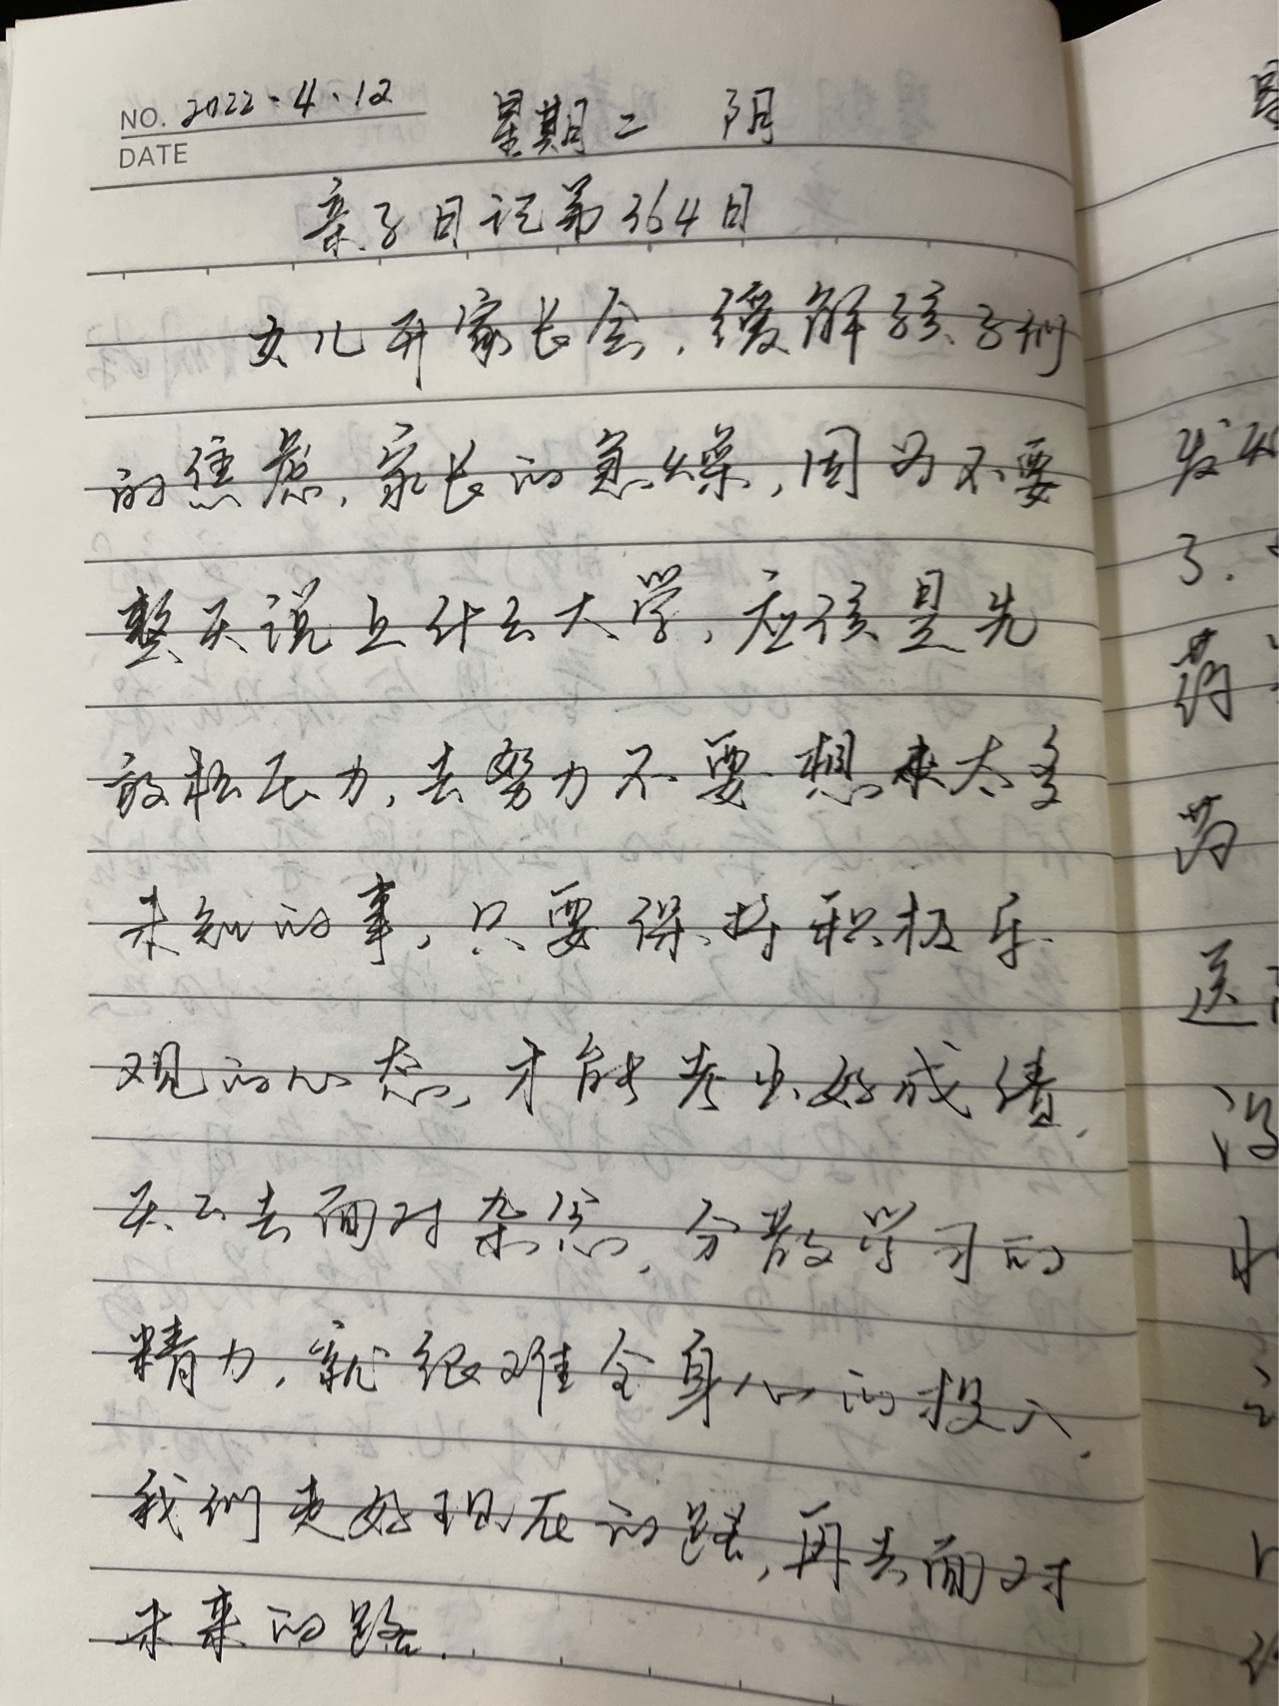 NO. 2022.4.12 星期二 阴
DATE
亲子日记第364日
女儿开家长会,缓解孩子们
的焦虑,家长的急燥,因为不要
整天说上什么大学,应该是先
放松压力,去努力不要想来太多
未知的事,只要保持积极乐
观的心态,才能考出好成绩.
天天去面对杂念,分散学习的
精力,就很难全身心的投入.
我们走好现在的路,再去面对
未来的路.